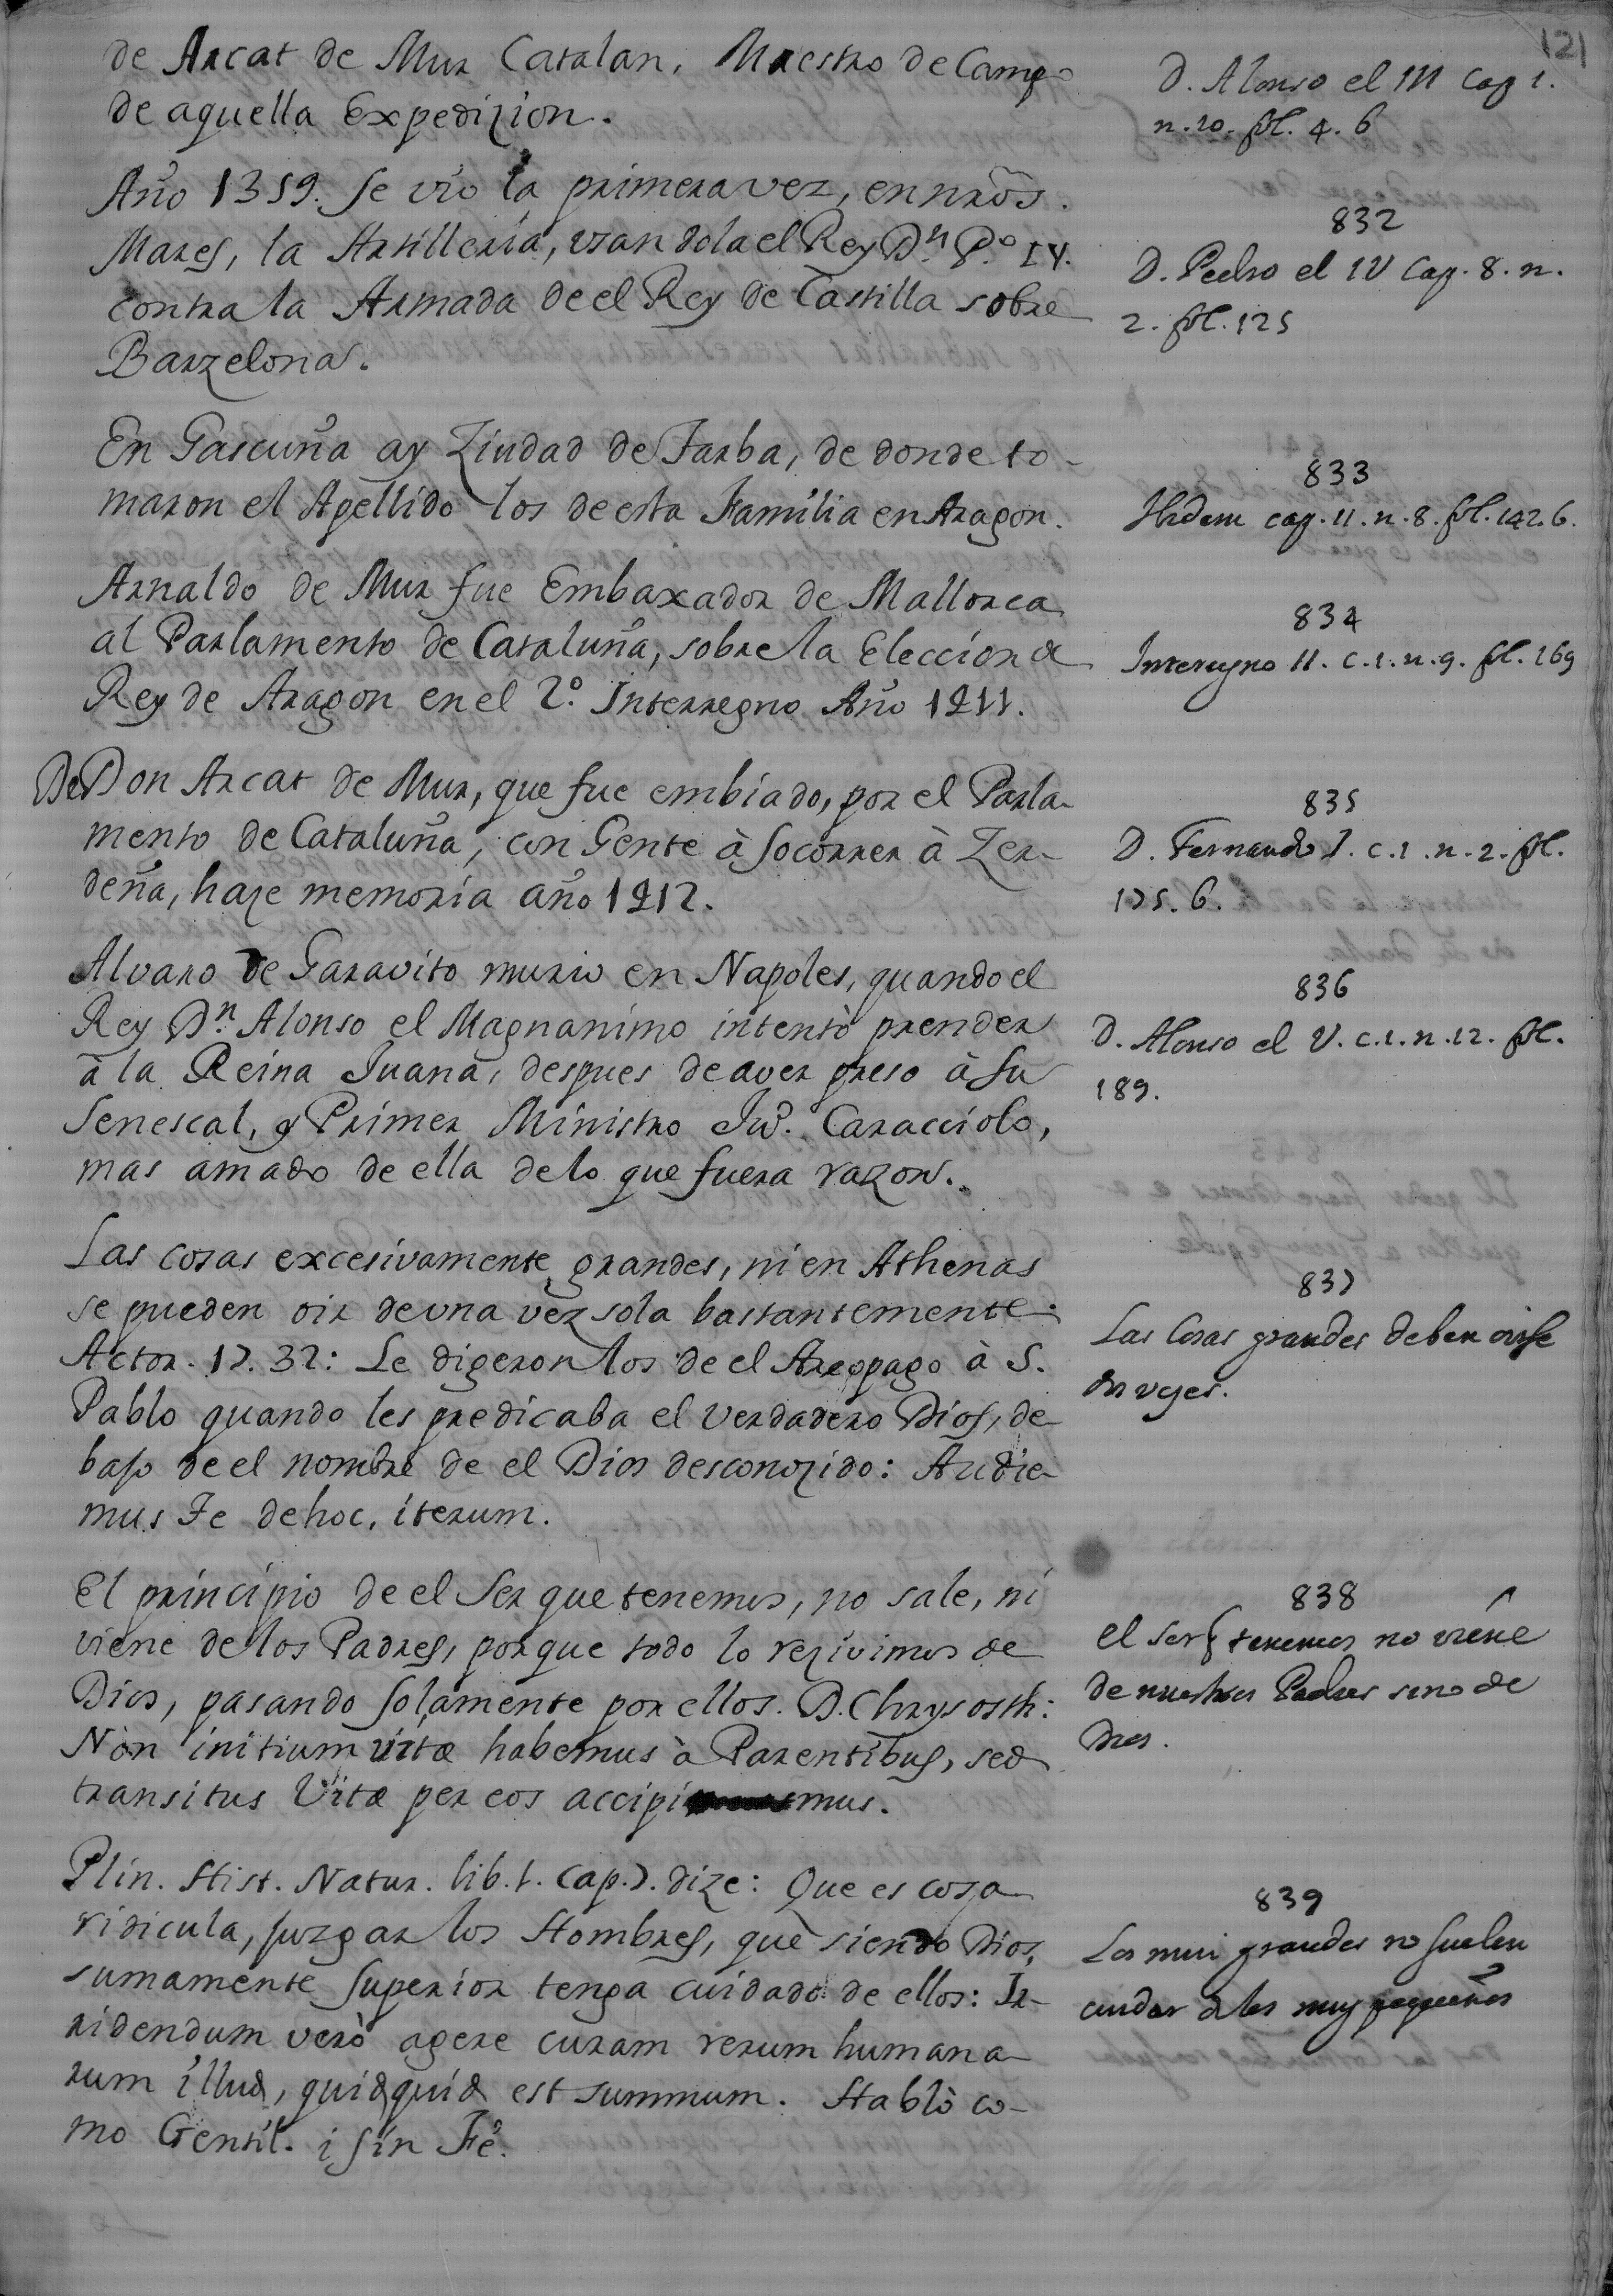 121
de Arcat de Mur Catalan, Maestro de Campo
de aquella Expedizion.
D. Alonso el III Cap 1.
n. 20. fol. 4. b
Año 1359. Se vio la primera vez, en nrõs.
Mares, la Artilleria, vsandola el Rey Dn. Po. IV.
contra la Armada de el Rey de Castilla sobre
Barzelona.
832
D. Pedro el IV Cap. 8. n.
2. fol. 125
En Gascuña ay Ziudad de Tarba, de donde to-
maron el Apellido los de esta Familia en Aragon.
833
cap. 11. n. 8. fol. 142. b.
Arnaldo de Mur fue Embaxador de Mallorca
al Parlamento de Cataluña, sobre la Eleccion de
Rey de Aragon en el 2o. Interregno Año 1411.
834
Interregno II. c. 1. n. 9. fol. 169
De Don Arcat de Mur, que fue embiado, por el Parla-
mento de Cataluña, con Gente à socorrer à Zer-
deña, haze memoria año 1412.
835
D. Fernando I. c. 1. n. 2. fol.
175. b.
Alvaro de Garavito murio en Napoles, quando el
Rey Dn. Alonso el Magnanimo intentò prender
à la Reina Juana, despues de aver preso à su
Senescal, y Primer Ministro Juo. Caracciolo,
mas amado de ella de lo que fuera razon.
836
D. Alonso el V. c. 1. n. 12. fol.
189.
Las cosas excesivamente grandes, ni en Athenas
se pueden oir de vna vez sola bastantemente.
Actor. 17. 32: Le digeron los de el Areopago à S.
Pablo quando les predicaba el verdadero Dios, de-
bajo de el nombre de el Dios desconozido: Audie-
mus Te de hoc, iterum.
837
Las Cosas grandes deben oirse
dos vezes.
El principio de el Ser que tenemos, no sale, ni
viene de los Padres, porque todo lo rezivimos de
Dios, pasando solamente por ellos. D. Chrysosth:
Non initium vitæ habemus à Parentibus, sed
transitus Vitæ per eos accipimus.
838
el ser q tenemos no viene
de nuestros Padres sino de
Dios.
Plin. Hist. Natur. lib. 1. Cap. 7. dize: Que es cosa
ridicula, juzgar los Hombres, que siendo Dios,
sumamente superior tenga cuidado de ellos: Ir-
ridendum verò agere curam rerum humana-
rum illud, quidquid est summum. Hablò co-
mo Gentil. i sin Fè.
839
Los mui grandes no suelen
cuidar de los muy pequeños